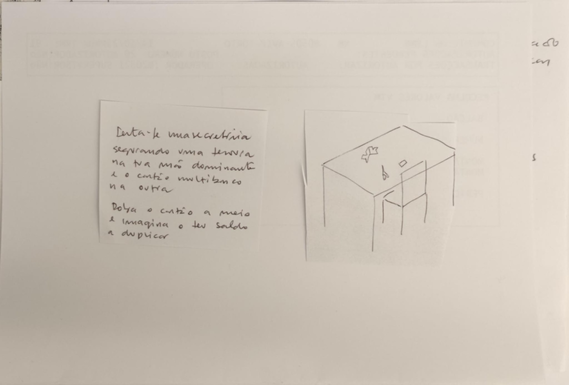 Deita-te numa secretária
segurando uma tesoura
na tua mão dominante
e o cartão multibanco
na outra
Dobra o cartão a meio
e imagina o teu saldo
a duplicar